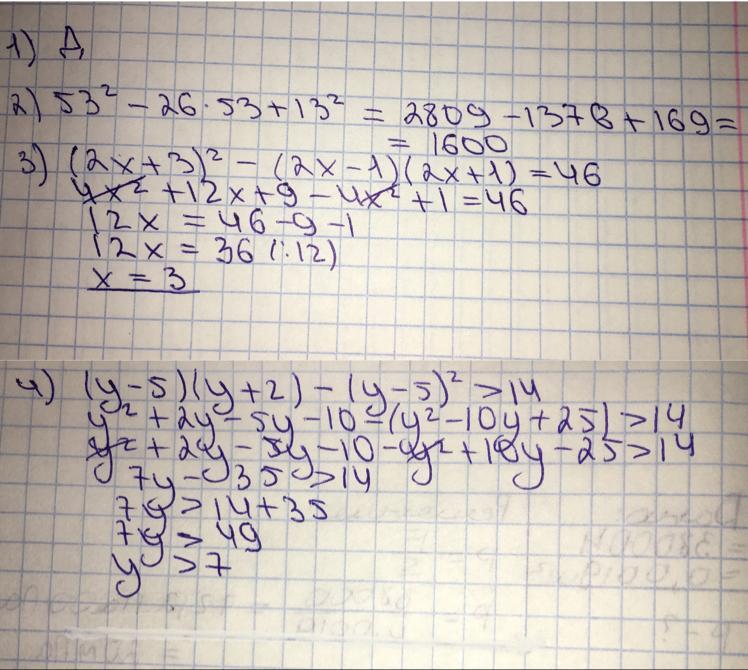 1) Д
2) 53² - 26·53 + 13² = 2809 - 1378 + 169 =
= 1600
3) (2x+3)² - (2x-1)(2x+1) = 46
4x² + 12x + 9 - 4x² + 1 = 46
12x = 46 - 9 - 1
12x = 36 (:12)
x = 3
4) (y-5)(y+2) - (y-5)² > 14
y² + 2y - 5y - 10 - (y² - 10y + 25) > 14
y² + 2y - 5y - 10 - y² + 10y - 25 > 14
7y - 35 > 14
7y > 14 + 35
7y > 49
y > 7